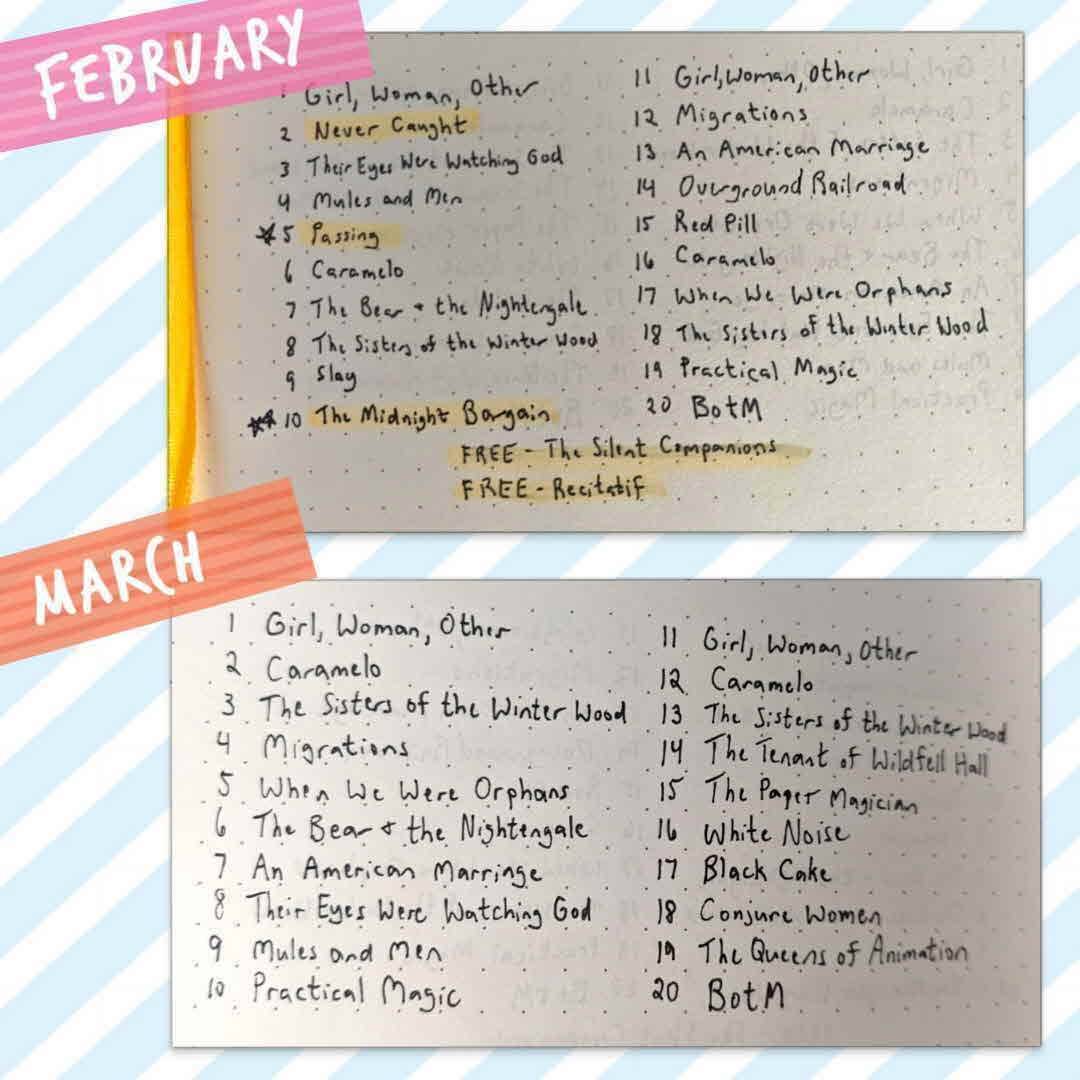 FEBRUARY
1 Girl, Woman, Other
2 Never Caught
3 Their Eyes Were Watching God
4 Mules and Men
5 Passing
6 Caramelo
7 The Bear + the Nightengale
8 The Sisters of the Winter Wood
9 Slay
10 The Midnight Bargain
11 Girl, Woman, Other
12 Migrations
13 An American Marriage
14 Overground Railroad
15 Red Pill
16 Caramelo
17 When We Were Orphans
18 The Sisters of the Winter Wood
19 Practical Magic
20 BotM
FREE - The Silent Companions
FREE - Recitatif
MARCH
1 Girl, Woman, Other
2 Caramelo
3 The Sisters of the Winter Wood
4 Migrations
5 When We Were Orphans
6 The Bear + the Nightengale
7 An American Marringe
8 Their Eyes Were Watching God
9 Mules and Men
10 Practical Magic
11 Girl, Woman, Other
12 Caramelo
13 The Sisters of the Winter Wood
14 The Tenant of Wildfell Hall
15 The Paper Magician
16 White Noise
17 Black Cake
18 Conjure Women
19 The Queens of Animation
20 BotM